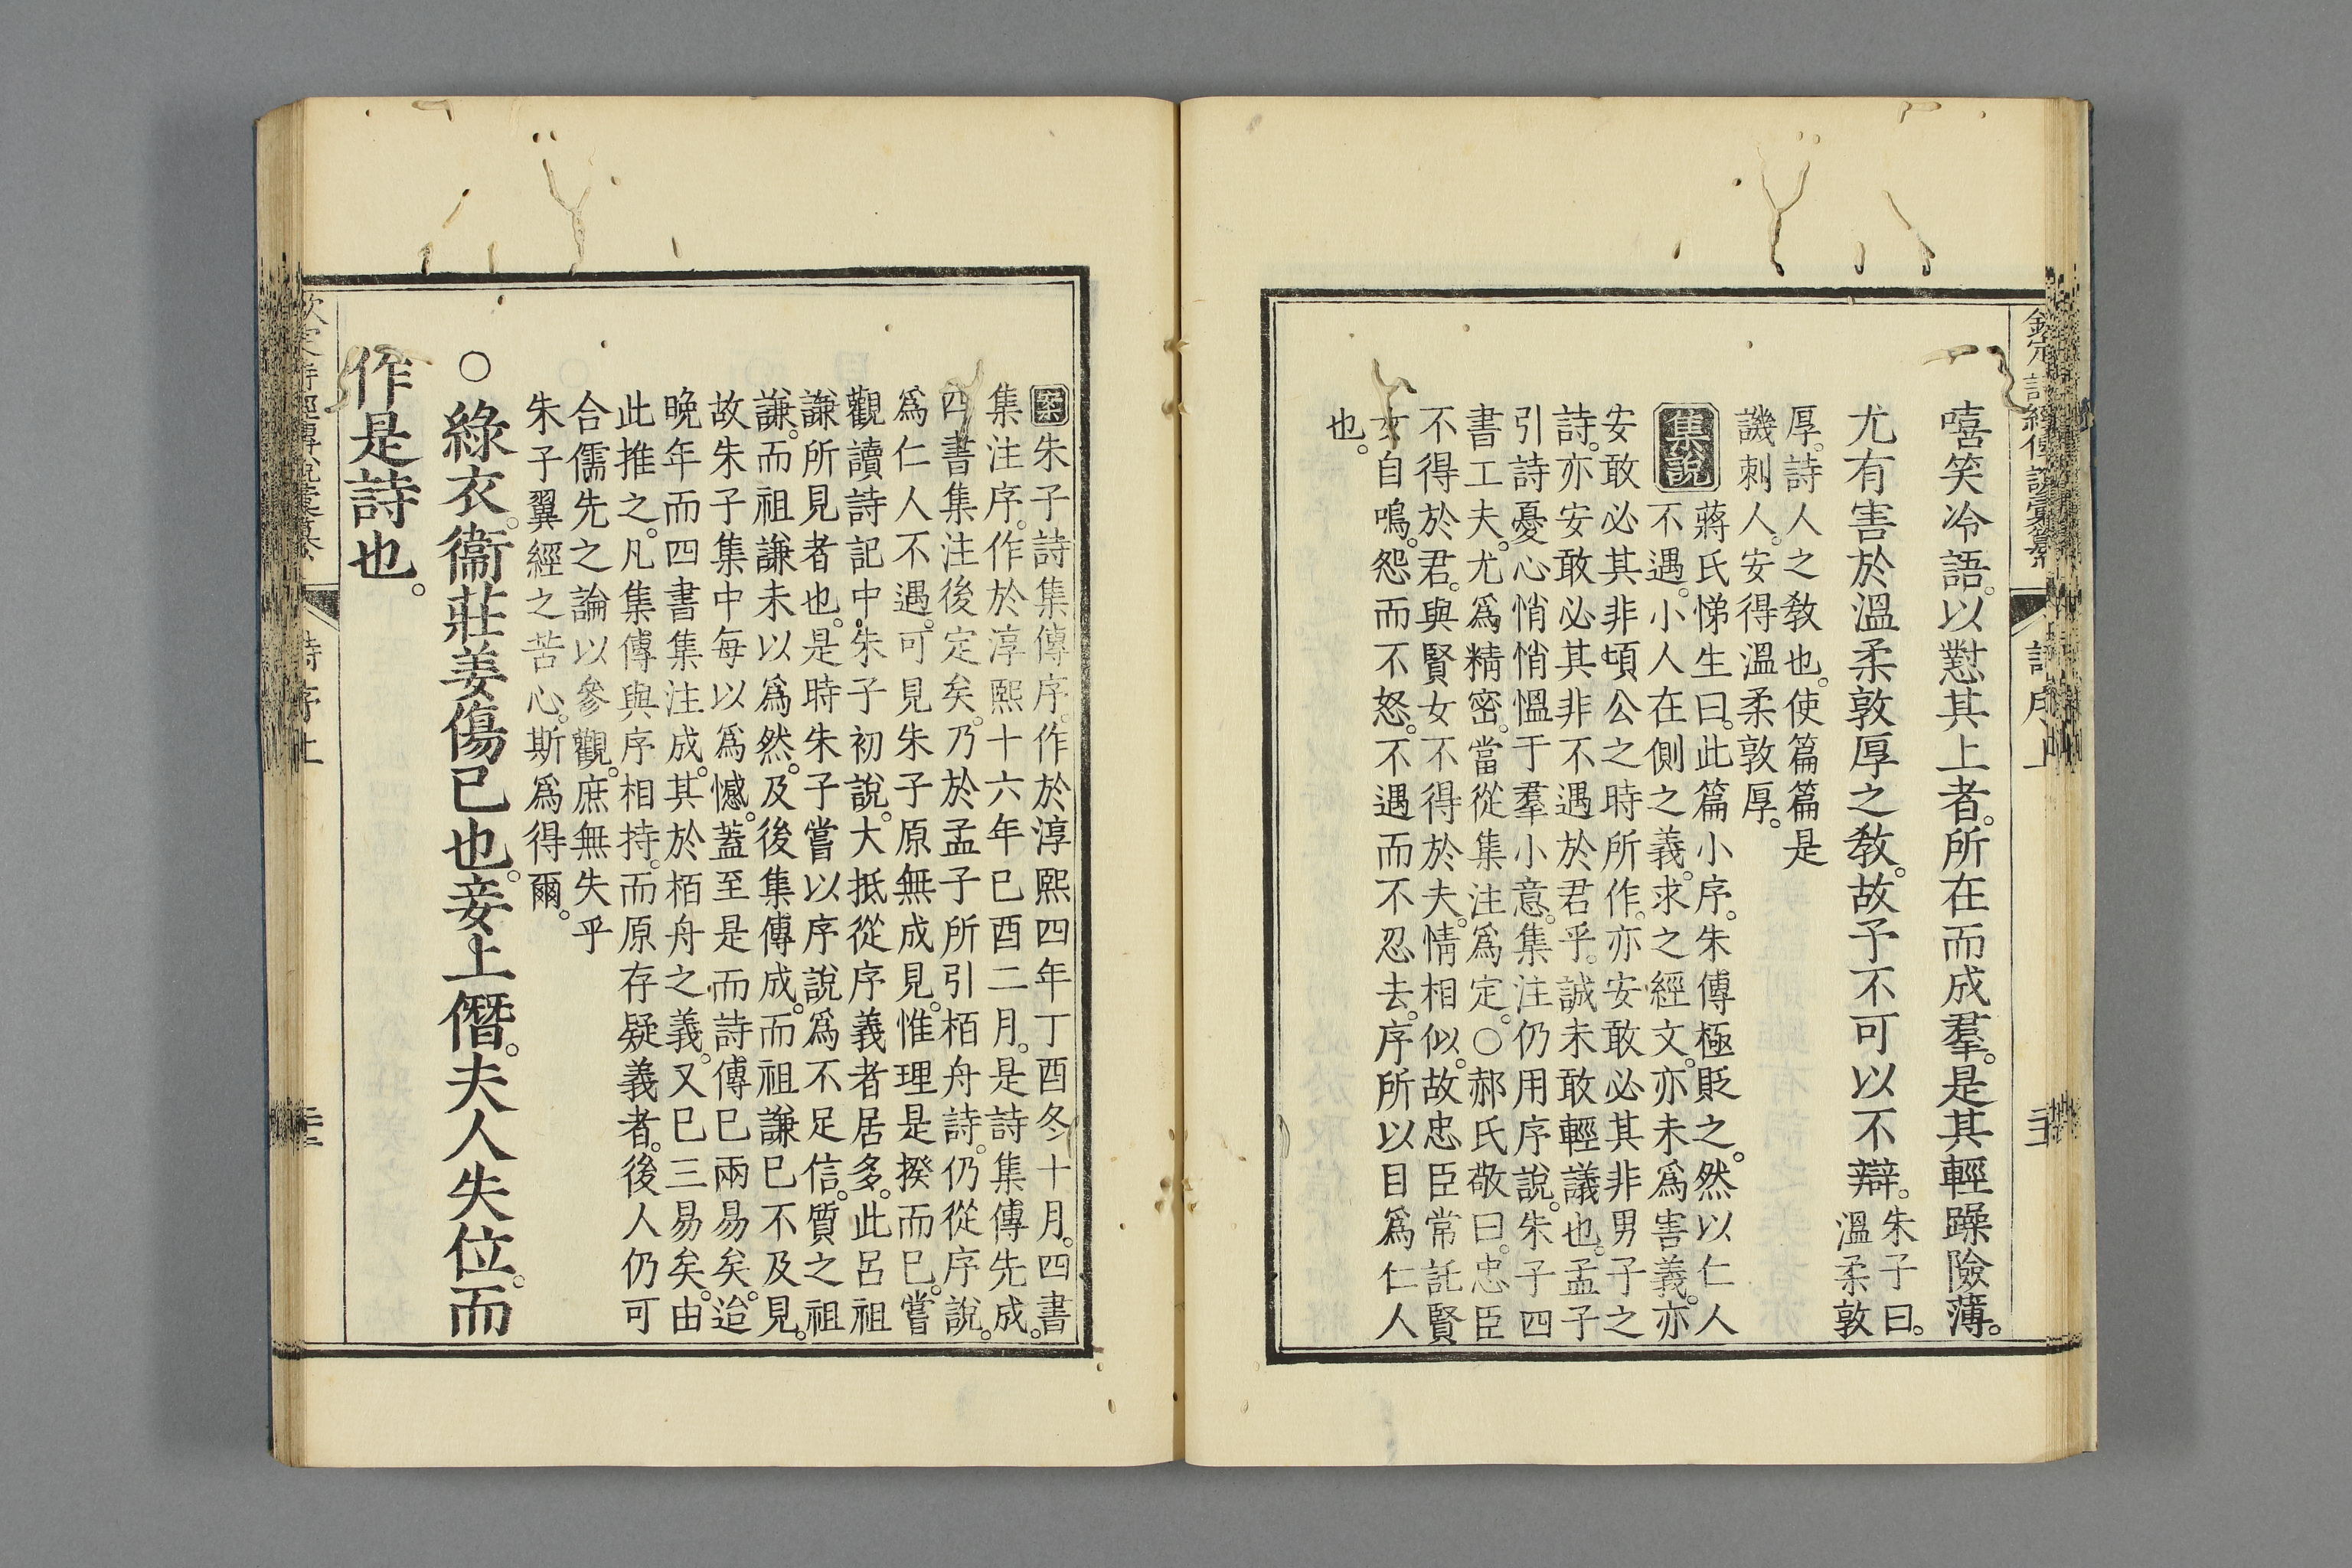 嘻笑冷語。以懟其上者。所在而成羣。是其輕躁險薄。
尤有害於溫柔敦厚之教。故予不可以不辯。朱子曰。
溫柔敦
厚。詩人之教也。使篇篇是
譏刺人。安得溫柔敦厚。
集說 蔣氏悌生曰。此篇小序。朱傳極貶之。然以仁人
不遇。小人在側之義。求之經文。亦未爲害義。亦
安敢必其非頃公之時所作。亦安敢必其非男子之
詩。亦安敢必其非不遇於君乎。誠未敢輕議也。孟子
引詩憂心悄悄慍于羣小意。集注仍用序說。朱子四
書工夫。尤爲精密。當從集注爲定。○郝氏敬曰。忠臣
不得於君。與賢女不得於夫。情相似。故忠臣常託賢
女自鳴。怨而不怒。不遇而不忍去。序所以目爲仁人
也。
案朱子詩集傳序。作於淳熙四年丁酉冬十月。四書
集注序。作於淳熙十六年巳酉二月。是詩集傳先成。
四書集注後定矣。乃於孟子所引栢舟詩。仍從序說。
爲仁人不遇。可見朱子原無成見。惟理是揆而巳。嘗
觀讀詩記中。朱子初說。大抵從序義者居多。此呂祖
謙所見者也。是時朱子嘗以序說爲不足信。質之祖
謙。而祖謙未以爲然。及後集傳成。而祖謙巳不及見。
故朱子集中每以爲憾。蓋至是而詩傳巳兩易矣。迨
晚年而四書集注成。其於栢舟之義。又巳三易矣。由
此推之。凡集傳與序相持。而原存疑義者。後人仍可
合儒先之論以參觀。庶無失乎
朱子翼經之苦心。斯爲得爾。
○綠衣。衞莊姜傷已也。妾上僭。夫人失位。而
作是詩也。